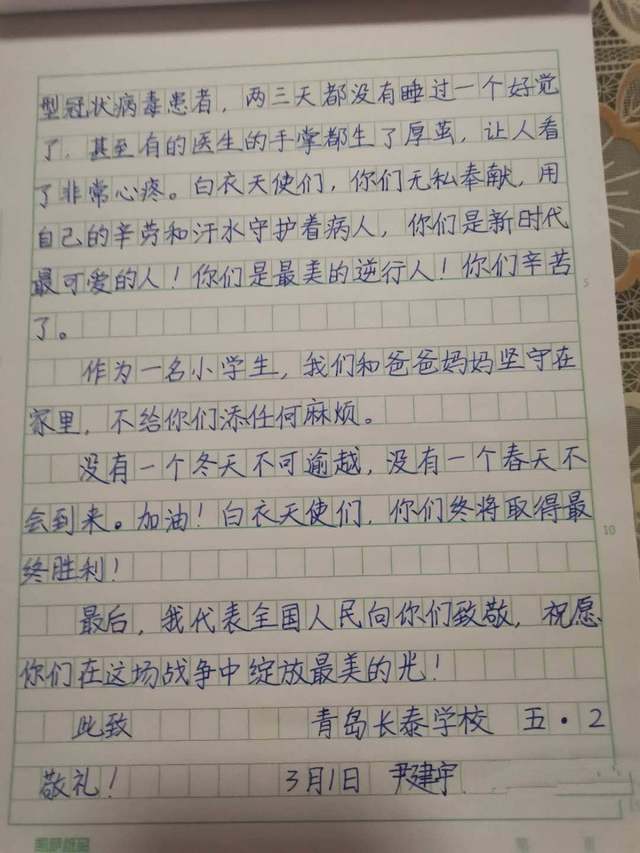 型冠状病毒患者，两三天都没有睡过一个好觉
了，甚至有的医生的手掌都生了厚茧，让人看
了非常心疼。白衣天使们，你们无私奉献，用
自己的辛劳和汗水守护着病人，你们是新时代
最可爱的人！你们是最美的逆行人！你们辛苦
了。
5
作为一名小学生，我们和爸爸妈妈坚守在
家里，不给你们添任何麻烦。
没有一个冬天不可逾越，没有一个春天不
会到来。加油！白衣天使们，你们终将取得最
10
终胜利！
最后，我代表全国人民向你们致敬，祝愿
你们在这场战争中绽放最美的光！
此致 青岛长泰学校 五·2
敬礼！ 3月1日 尹建宇
第 页